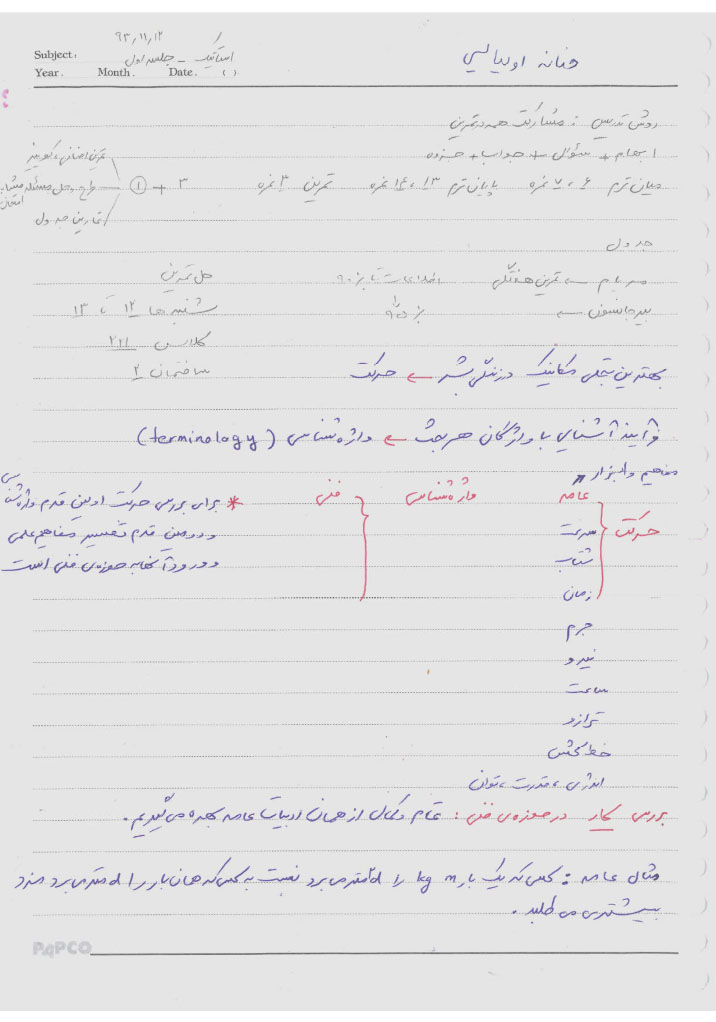 ۹۳/۱۱/۱۲
Subject. استاتیک - جلسه اول
Year. Month. Date. ( )
روش تدریس : مشارکت همه در تمرین
ابهام + سؤال + جواب + جزوه
میان‌ترم ۶ ، ۷ نمره پایان‌ترم ۱۳ ، ۱۴ نمره تمرین ۳ نمره ۳ + ①
تمرین اضافی
طرح و حل مسئله مشابه امتحان
تمارین جدول
جدول
مریام ← تمرین هفتگی
حل تمرین
بیرجانسون ←
شنبه ها ۱۲ تا ۱۳
کلاس ۲۱۱
ساختمان ۲
بهترین تجلی مکانیک در زندگی بشر ← حرکت
فرآیند آشنایی با واژگان هر بحث ← واژه شناسی (terminology)
مفاهیم و ابزار
عامه واژه شناسی فنی
حرکت
سرعت
شتاب
زمان
جرم
نیرو
ساعت
ترازو
خط کش
انرژی ، قدرت ، توان
* برای بررسی حرکت اولین قدم واژه شناسی
و دومین قدم تفسیر مفاهیم علمی
و ورود آنها به حوزه‌ی فنی است
بررسی کار در حوزه‌ی فنی : تمام و کمال از همان ادبیات عامه بهره می‌گیریم .
مثال عامه : کسی که یک بار m kg را ۲d متر می‌برد نسبت به کسی که همان بار را d متر می‌برد مزد
بیشتری می طلبد .
PAPCO